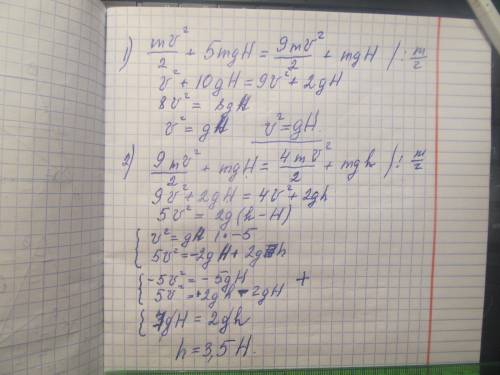 1) mv²/2 + 5mgH = 9mv²/2 + mgH /: m/2
v² + 10gH = 9v² + 2gH
8v² = 8gH
v² = gH v² = gH.
2) 9mv²/2 + mgH = 4mv²/2 + mgh /: m/2
9v² + 2gH = 4v² + 2gh
5v² = 2g(h - H)
{ v² = gH | · -5
5v² = -2gH + 2gh
{ -5v² = -5gH +
5v² = +2gh - 2gH
{ 7gH = 2gh
h = 3,5H.